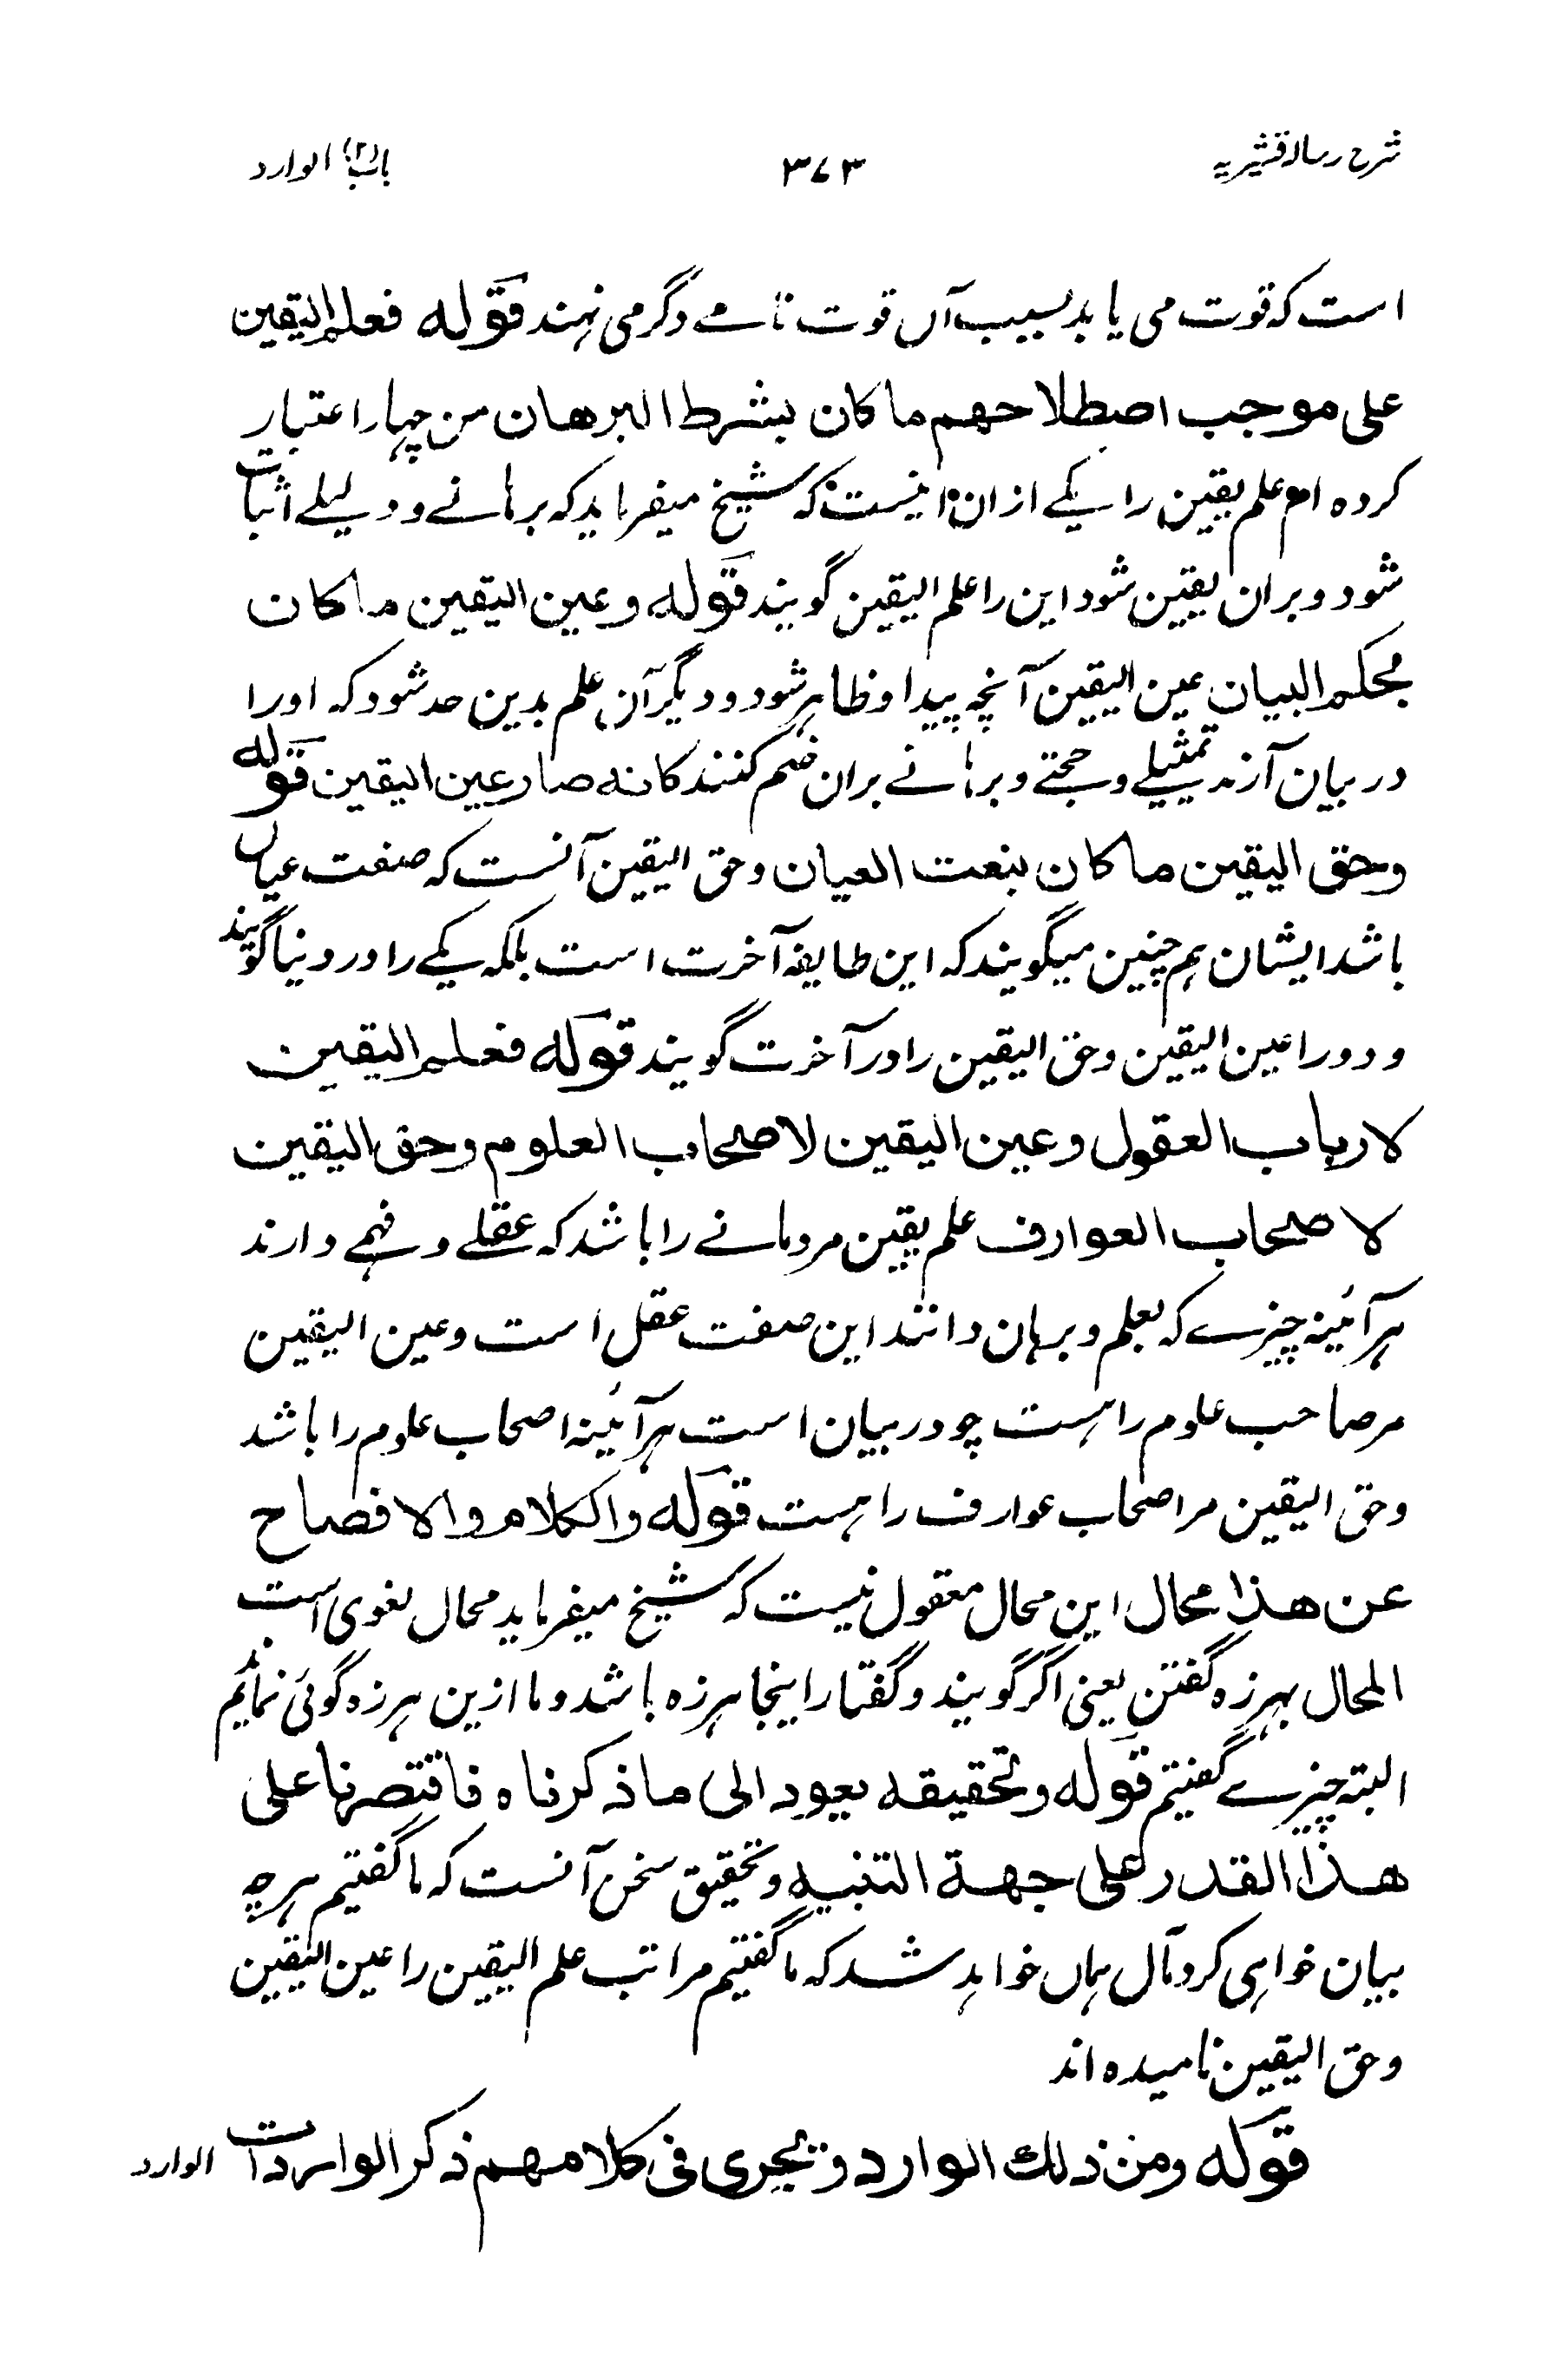 شرح رسالہ قشیریہ
۳۷۳
باب (۲) الوارد
است که قوت می یابد بسبب آں قوت نامے دگر می نہند قوله فعلم الیقین
علی موجب اصطلاحهم ما کان بشرط البرهان من چہار اعتبار
کرده ام علم یقین را یکے از ان اینست که شیخ میفرماید که برہانے و دلیلے اثبات
شود و بران یقین شود این را علم الیقین گویند قوله وعین الیقین ما کان
بحکم البیان عین الیقین آنچه پیدا و ظاہر شود و دیگر آن علم بدین حد شود که اورا
در بیان آرند تمثیلے و حجتے و برہانے بران ضم کنند کانه صار عین الیقین قوله
وحق الیقین ما کان بنعت العیان وحق الیقین آنست که صفت عیاں
باشد ایشان ہم چنین میگویند که این طایفه آخرت است بلکه یکے را در دنیا گویند
و دو را عین الیقین وحق الیقین را در آخرت گویند قوله فعلم الیقین
لارباب العقول وعین الیقین لاصحاب العلوم وحق الیقین
لاصحاب العوارف علم یقین مردمانے را باشد که عقلے و فہمے دارند
ہر آئینه چیزے که بعلم و برہان دانند این صفت عقل است وعین الیقین
مر صاحب علوم را ہست چو در بیان است ہر آئینه اصحاب علوم را باشد
وحق الیقین مر اصحاب عوارف را ہست قوله والکلام والافصاح
عن هذا محال این محال معقول نیست که شیخ میفرماید محال لغوی است
المحال بہرزه گفتن یعنی اگر گویند و گفتار اینجا ہرزه باشد و ما ازین ہرزه گوئی نمائیم
البته چیزے گفتیم قوله وتحقیقه یعود الی ما ذکرناه فاقتصرنا علی
هذا القدر علی جهة التنبیه و تحقیق سخن آنست که ما گفتیم ہرچه
بیان خواہی کرد مآل ہماں خواہد شد که ما گفتیم مراتب علم الیقین را عین الیقین
وحق الیقین نامیده اند
قوله ومن ذلك الوارد ویجری فی کلامهم ذکر الواردات
الوارد